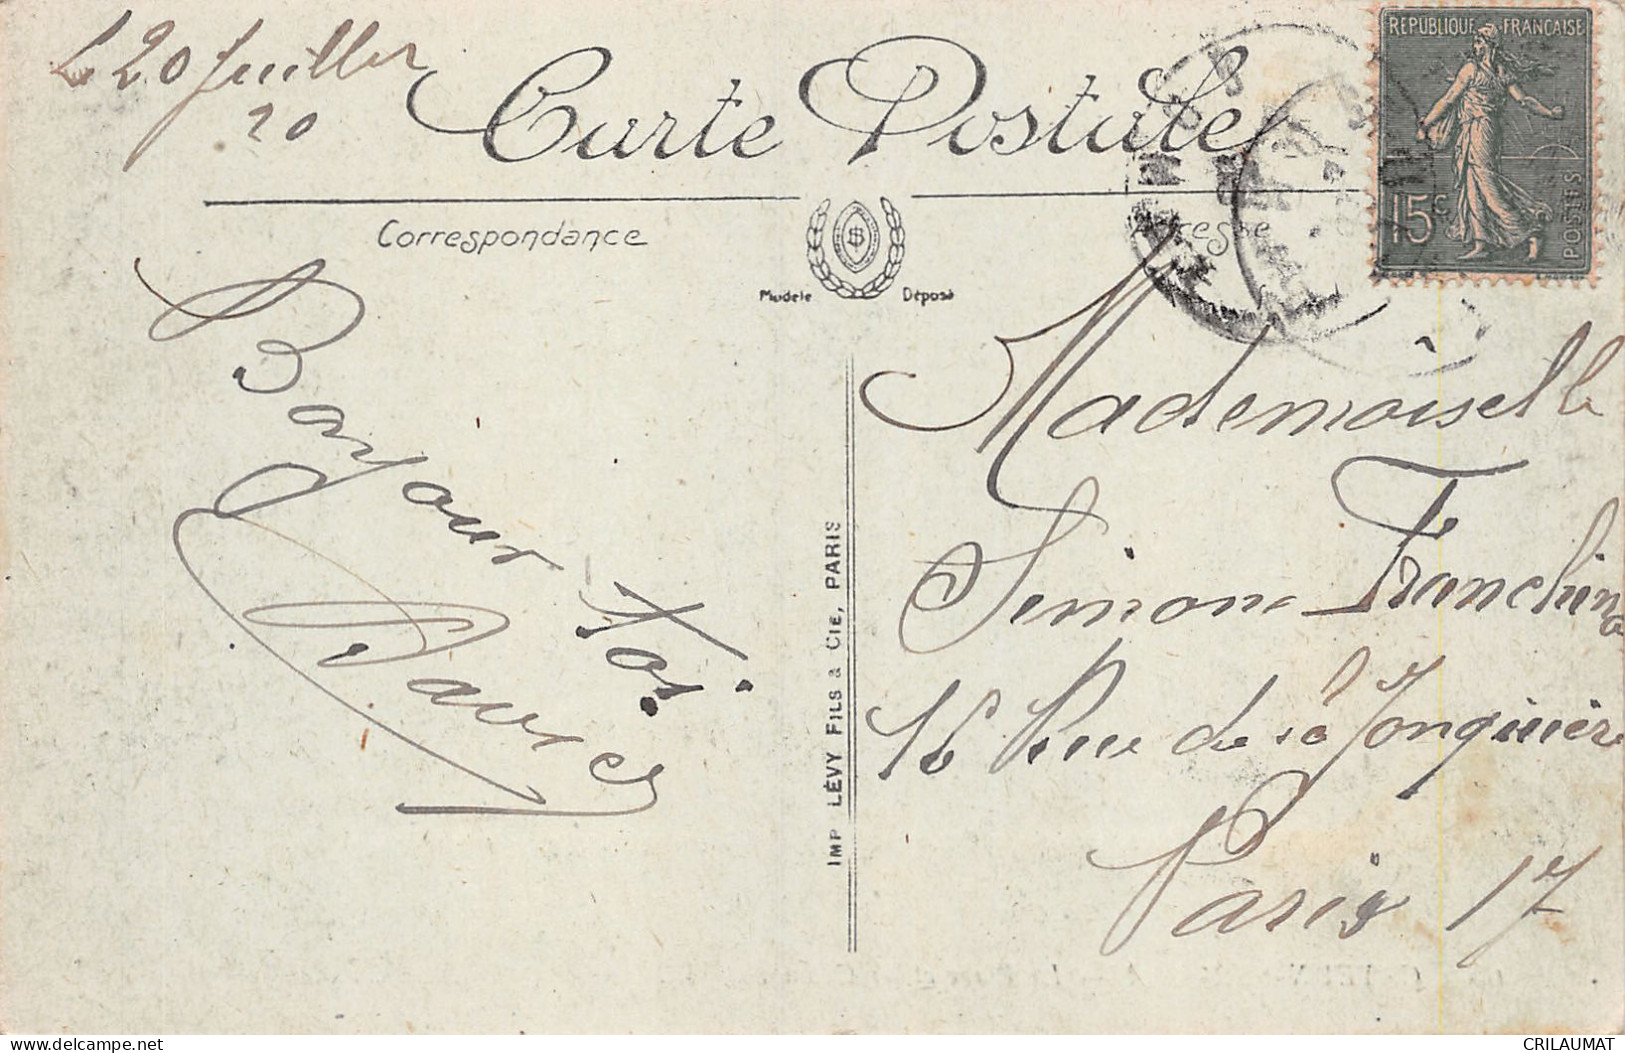 Le 20 Juillet
20
Carte Postale
REPUBLIQUE FRANCAISE
15c
POSTES
Correspondance
Adresse
Modèle Déposé
Bonjour toi
Mademoiselle
Simone Franchino
16 Rue de la Jonquière
Paris 17
IMP LÉVY FILS & CIE, PARIS
delcampe.net
CRILAUMAT